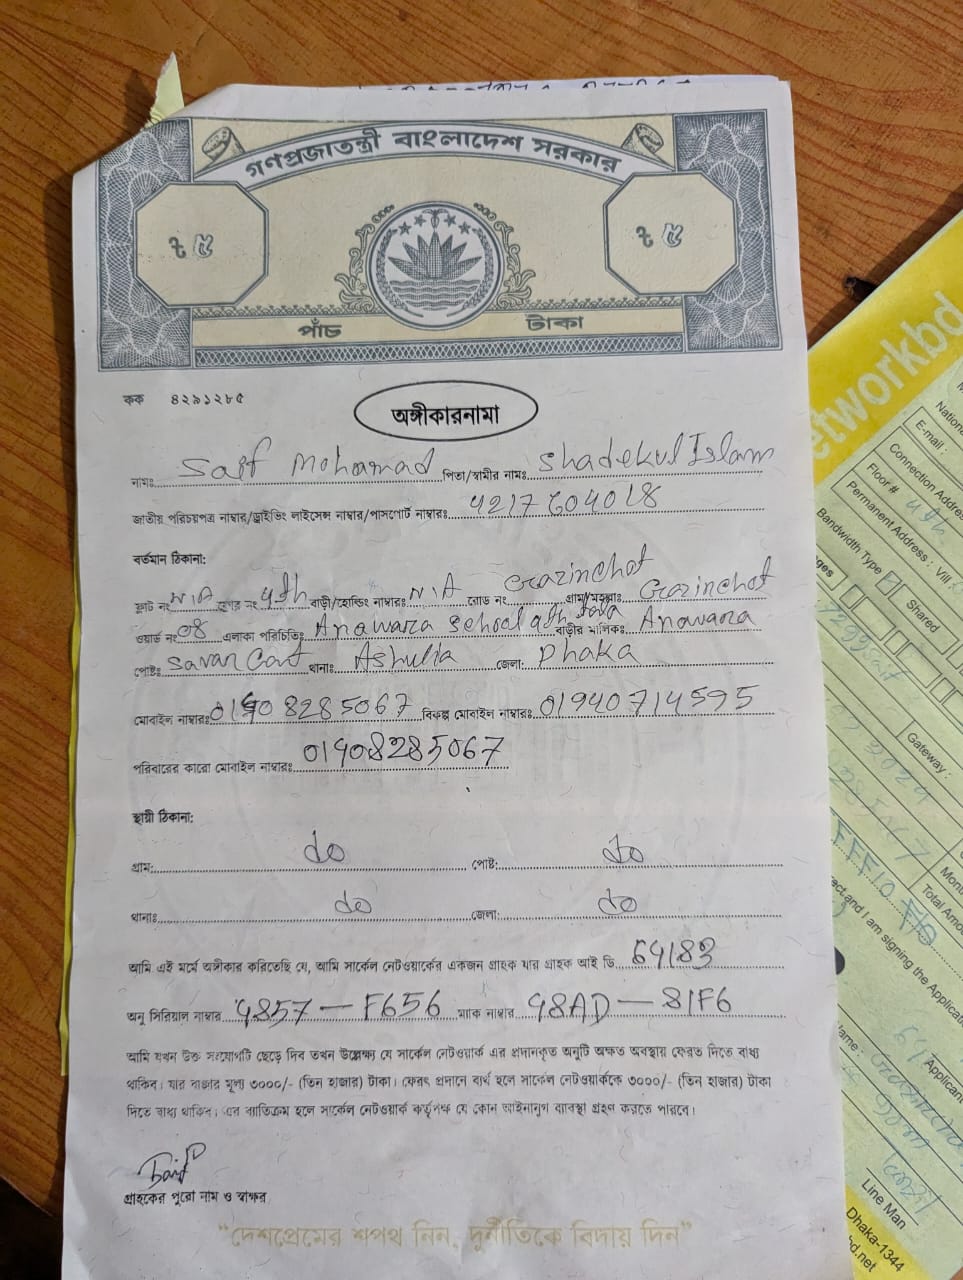 গণপ্রজাতন্ত্রী বাংলাদেশ সরকার
৳ ৫
৳ ৫
পাঁচ টাকা
কক ৪২৯১২৮৫
অঙ্গীকারনামা
নামঃ Saif Mohamad পিতা/স্বামীর নামঃ Shadekul Islam
জাতীয় পরিচয়পত্র নাম্বার/ড্রাইভিং লাইসেন্স নাম্বার/পাসপোর্ট নাম্বারঃ 4217604018
বর্তমান ঠিকানা:
ফ্লাট নং N/A ফ্লোর নং 4th বাড়ী/হোল্ডিং নাম্বারঃ N/A রোড নং Gazirchot গ্রাম/মহল্লাঃ Gazirchot
ওয়ার্ড নং 08 এলাকা পরিচিতিঃ Anawara School বাড়ীর মালিকঃ Anawara
পোষ্টঃ Savar Cant থানাঃ Ashulia জেলা: Dhaka
মোবাইল নাম্বারঃ 01908285067 বিকল্প মোবাইল নাম্বারঃ 01940714595
পরিবারের কারো মোবাইল নাম্বারঃ 01908285067
স্থায়ী ঠিকানা:
গ্রাম: do পোষ্ট: do
থানাঃ do জেলা: do
আমি এই মর্মে অঙ্গীকার করিতেছি যে, আমি সার্কেল নেটওয়ার্কের একজন গ্রাহক যার গ্রাহক আই ডি 64183
অনু সিরিয়াল নাম্বার 4857-F656 ম্যাক নাম্বার 48AD-81F6
আমি যখন উক্ত সংযোগটি ছেড়ে দিব তখন উল্লেখ্য যে সার্কেল নেটওয়ার্ক এর প্রদানকৃত অনুটি অক্ষত অবস্থায় ফেরত দিতে বাধ্য
থাকিব। যার বাজার মূল্য ৩০০০/- (তিন হাজার) টাকা। ফেরৎ প্রদানে ব্যর্থ হলে সার্কেল নেটওয়ার্ককে ৩০০০/- (তিন হাজার) টাকা
দিতে বাধ্য থাকিব। এর ব্যতিক্রম হলে সার্কেল নেটওয়ার্ক কর্তৃপক্ষ যে কোন আইনানুগ ব্যবস্থা গ্রহণ করতে পারবে।
Saif
গ্রাহকের পুরো নাম ও স্বাক্ষর
"দেশপ্রেমের শপথ নিন, দুর্নীতিকে বিদায় দিন"
etworkbd
Nation
E-mail :
Connection Addre
Floor# 4th
Permanent Address : Vill
Bandwidth Type
Shared
ges
Gateway :
Mon
Total Amo
act,and I am signing the Applicati
Applicant
ame :
Line Man
Dhaka-1344
bd.net